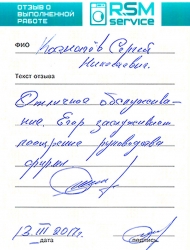 ОТЗЫВ О
ВЫПОЛНЕННОЙ
РАБОТЕ
RSM
service
ФИО
Сергей
Николаевич.
Текст отзыва
Отличное обслужива-
ние. Егор заслуживает
поощрения руководства
фирмы
13 III 2017г.
дата
подпись